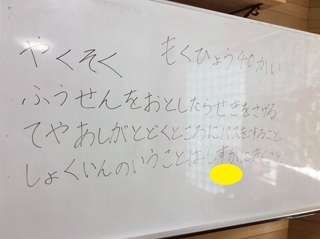 やくそく もくひょう40かい
ふうせんをおとしたらせきをさげる
てやあしがとどくところにパスをすること
しょくいんのいうことはしずかにきく